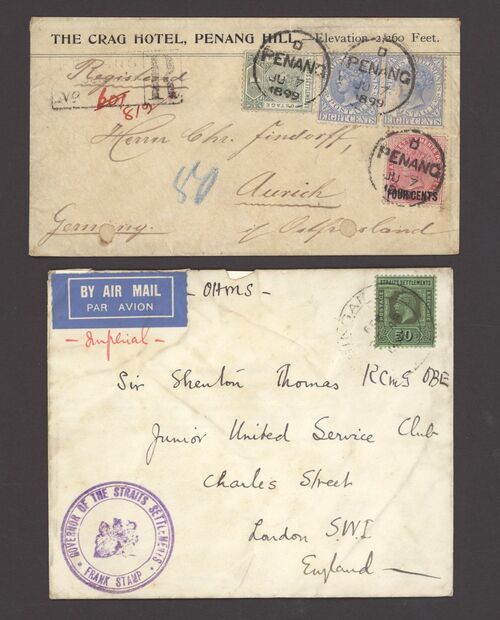 THE CRAG HOTEL, PENANG HILL, Elevation 2,260 Feet.
Registered
D
PENANG
JU 7
1899
D
PENANG
JU 7
1899
POSTAGE
EIGHT CENTS
EIGHT CENTS
No 601
819
R
Herrn Chr. Findorff,
D
PENANG
JU 7
FOUR CENTS
50
Aurich
Germany.
i/ Ostfriesland
BY AIR MAIL
PAR AVION
- OHMS -
- Imperial -
STRAITS SETTLEMENTS
POSTAGE
30
Sir Shenton Thomas KCMG OBE
Junior United Service Club
Charles Street
London S.W.1
England —
GOVERNOR OF THE STRAITS SETTLEMENTS
FRANK STAMP